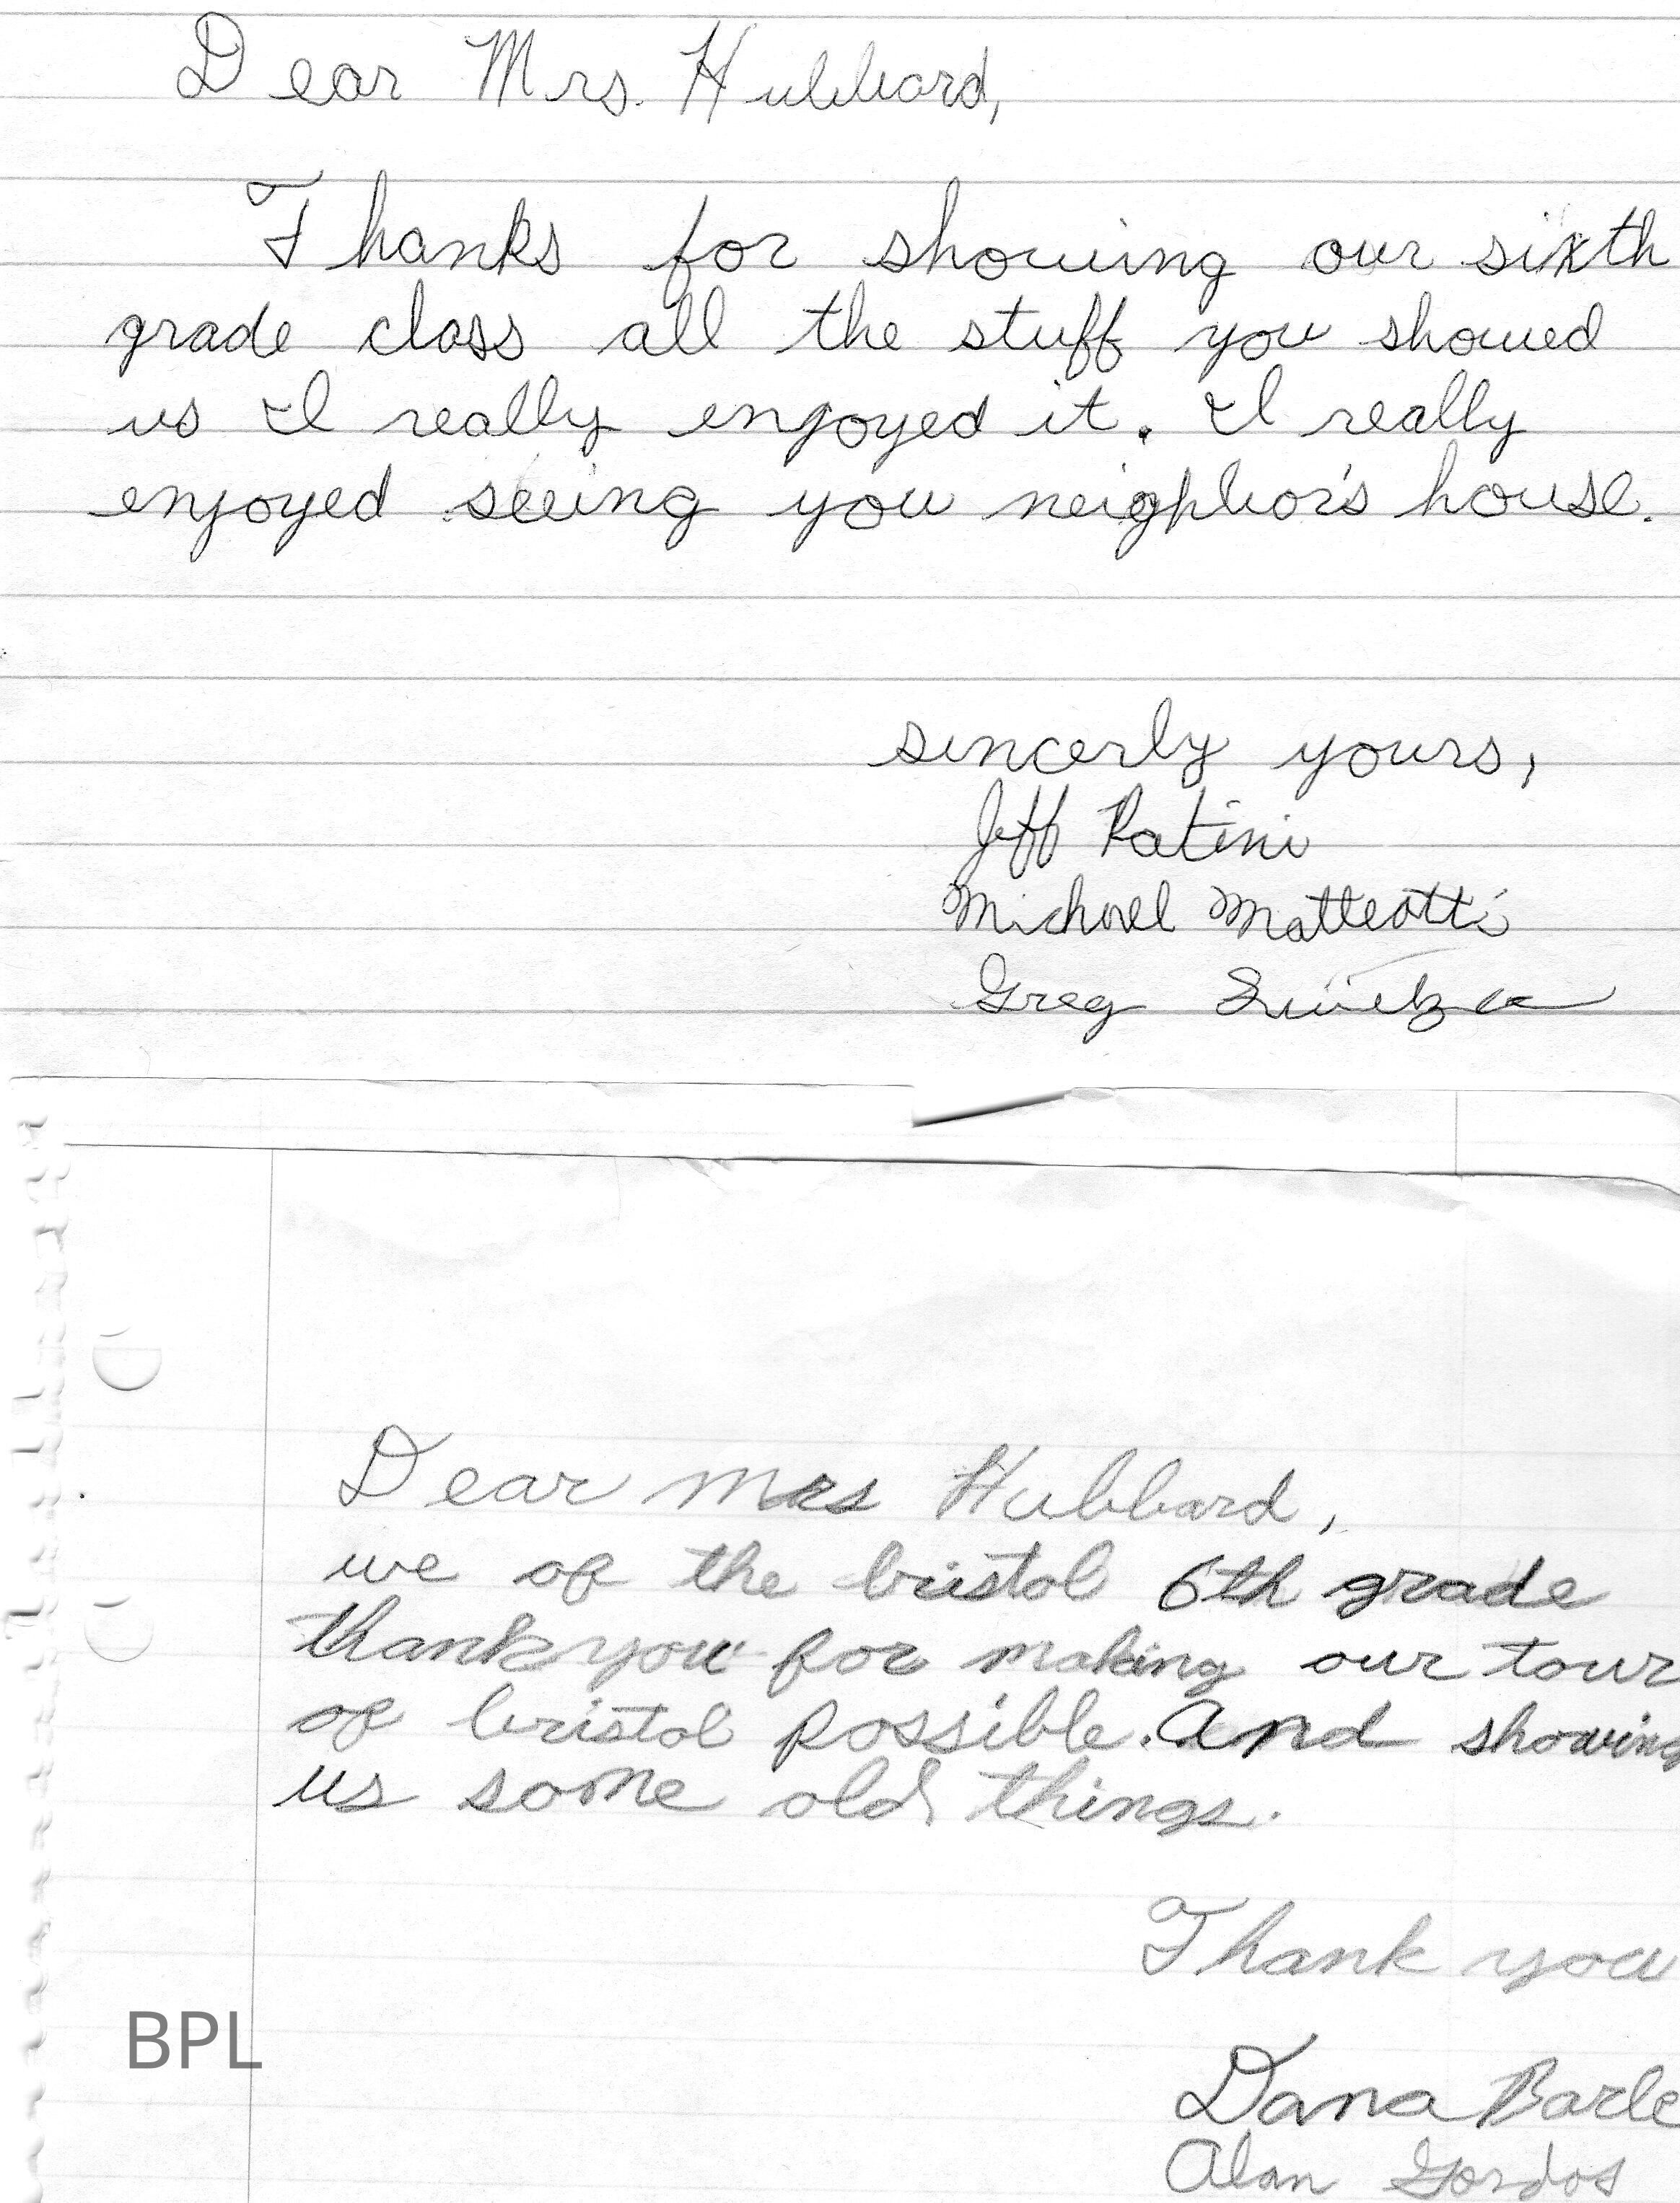 Dear Mrs. Hubbard,
Thanks for showing our sixth
grade class all the stuff you showed
us I really enjoyed it. I really
enjoyed seeing you neighbor's house.
sincerly yours,
Jeff Patini
Michael Matteotti
Greg
Dear Mrs Hubbard,
we of the bristol 6th grade
thank you for making our tour
of bristol possible. And showing
us some old things.
Thank you
BPL
Dana Barle
Alan Gordos